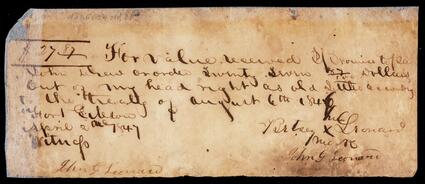 $27 87/100 For value received I Promise to pay
John Drew or order Twenty Seven 87/100 Dollars
out of my head right as old settler under
the treaty of August 6th 1846
Fort Gibson
April 2nd 1847
Witness
her
Betsey X Leonard
mark
John G Leonard
John G Leonard